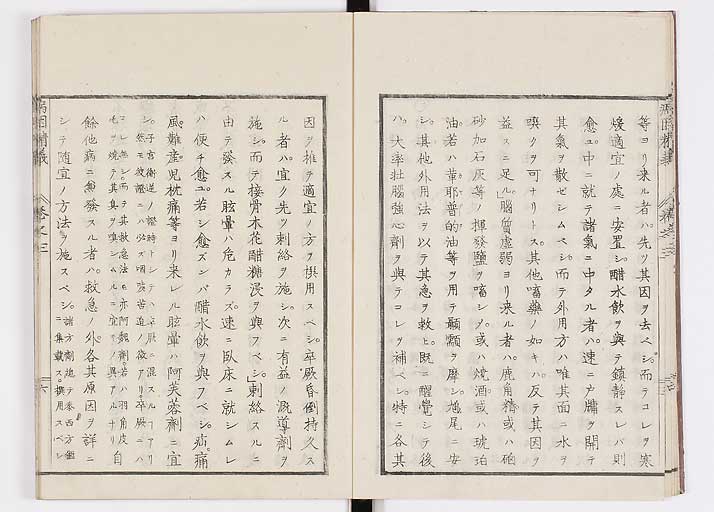 等ヨリ来ル者ハ先ツ其因ヲ去ベシ。而テコレヲ寒
煖適宜ノ處ニ安置シ醋水飲ヲ與テ鎮静スレバ則
愈ユ。中ニ就テ諸氣ニ中タル者ハ。速ニ戸牖ヲ開テ
其氣ヲ散ゼシムベシ。而テ外用方ハ唯其面ニ水ヲ
噀クヲ可ナリトス。其他嗜藥ノ如キハ。反テ其因ヲ
益スニ足ル。腦質虚弱ヨリ来ル者ハ。鹿角精或ハ硇
砂加石灰等ノ揮發鹽ヲ嗅シメ。或ハ焼酒或ハ琥珀
油。若ハ葷耶普的油等ヲ用テ顳顬ヲ摩シ。尨尾ニ安
シ。其他外用法ヲ以テ其急ヲ救ヒ。既ニ醒覺シテ後
ハ。大率壯腦強心劑ヲ與テコレヲ補ベシ。特ニ各其
因ヲ推テ適宜ノ方ヲ撰用スベシ。卒厥昏倒持久ス
ル者ハ。宜ク先ツ刺絡ヲ施シ。次ニ有益ノ溉導劑ヲ
施シ。而テ接骨木花醋糖浸ヲ與フベシ。刺絡スルニ
由テ發スル眩暈ハ危カラズ。速ニ臥床ニ就シムレ
ハ便チ愈ユ。若シ愈ズンバ醋水飲ヲ與フベシ。疝痛
風。難産。児枕痛等ヨリ来レル眩暈ハ阿芙蓉劑ニ宜
シ。
餘他病ニ兼發スル者ハ。救急ノ外。各其原因ヲ詳ニ
シテ隨宜ノ方法ヲ施スベシ。諸方劑進テ泰西方鑑ニ集載ス。撰用スベシ